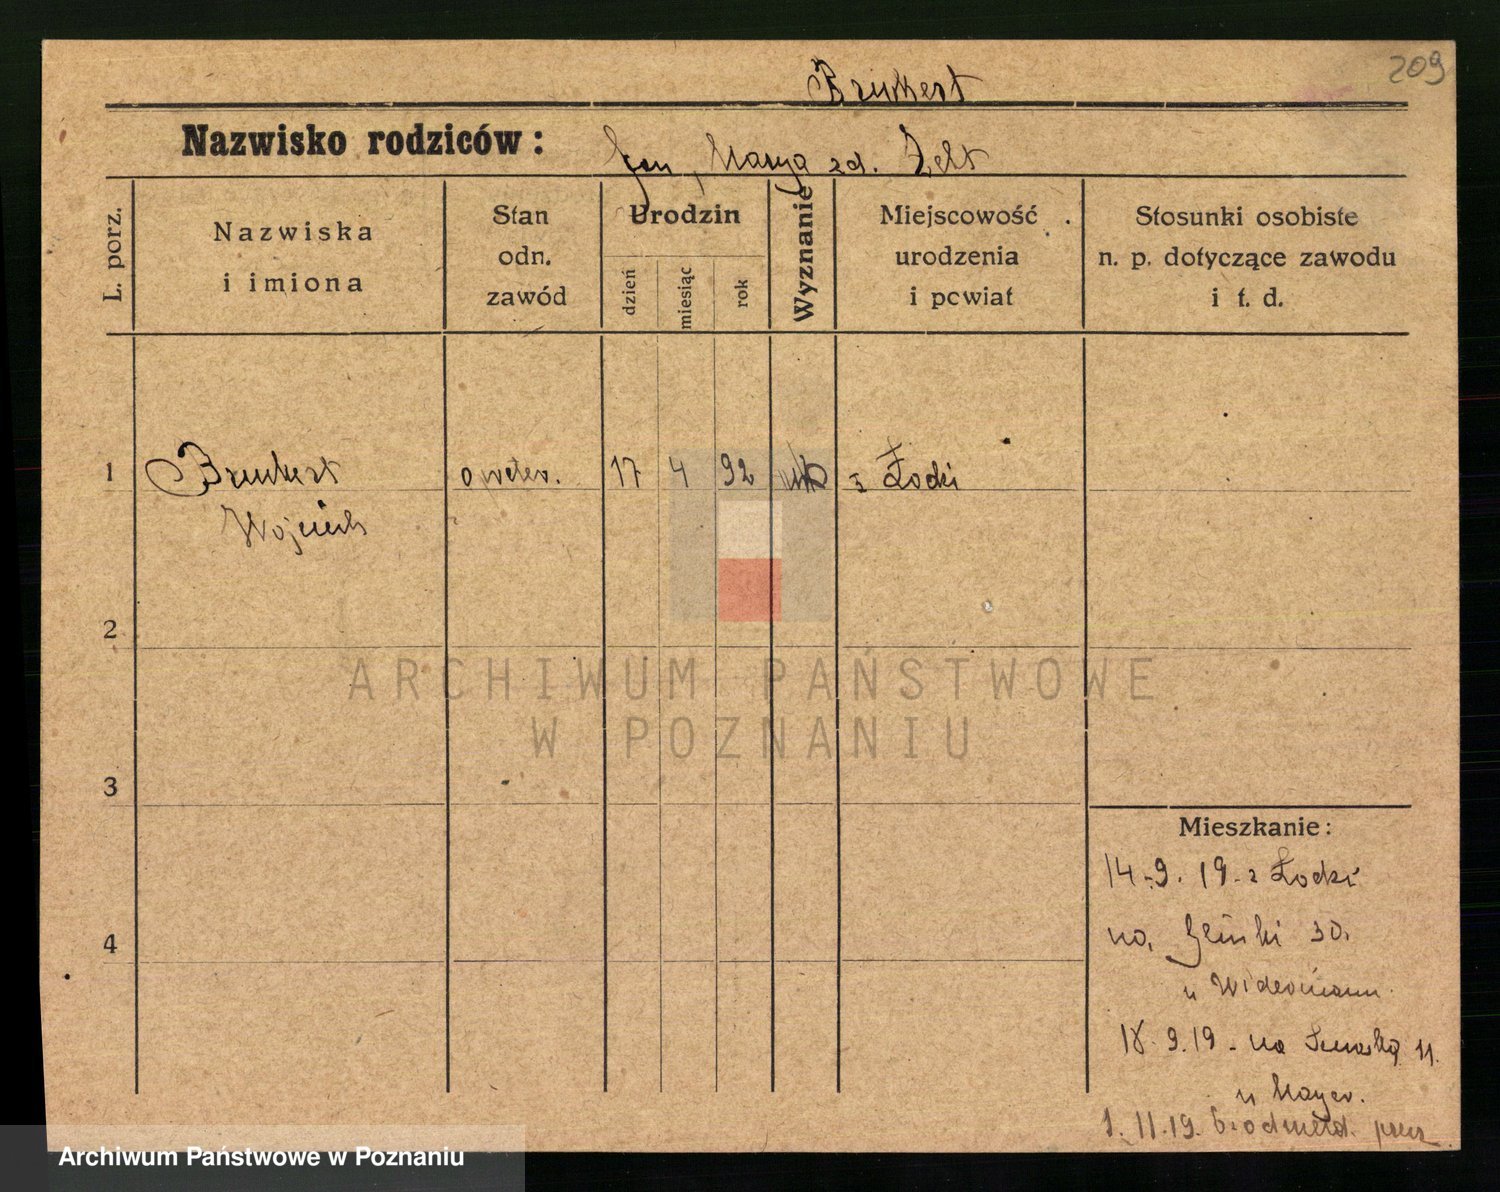 209
Nazwisko rodziców:
Jan, Marya zd. Zelt
L. porz.
Nazwiska
i imiona
Stan
odn.
zawód
Urodzin
dzień
miesiąc
rok
Wyznanie
Miejscowość
urodzenia
i powiat
Stosunki osobiste
n. p. dotyczące zawodu
i t. d.
1
17 4 92
z Łodzi
Wojciech
2
ARCHIWUM PAŃSTWOWE
W POZNANIU
3
Mieszkanie:
14.9.19 - z Łodzi
4
na 30.
u
18.9.19 - na 11.
u Mayer.
1.11.19.
Archiwum Państwowe w Poznaniu